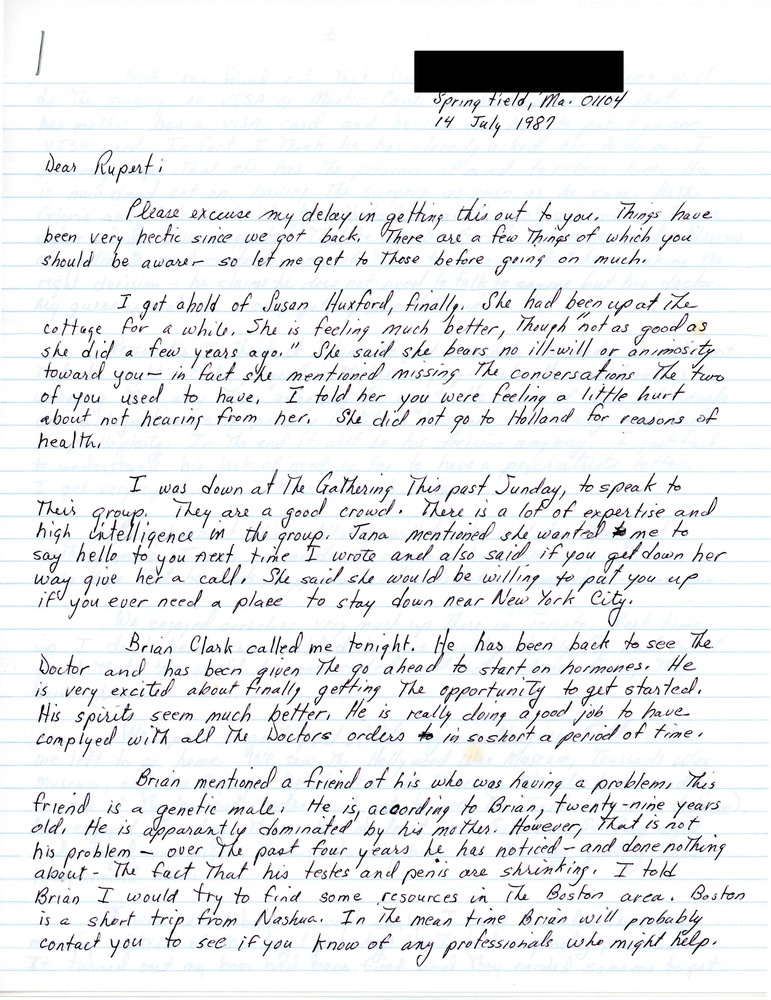 Springfield, Ma. 01104
14 July 1987
Dear Rupert:
Please excuse my delay in getting this out to you. Things have
been very hectic since we got back. There are a few Things of which you
should be aware - so let me get to Those before going on much.
I got ahold of Susan Huxford, finally. She had been up at The
cottage for a while. She is feeling much better, Though "not as good as
she did a few years ago." She said she bears no ill-will or animosity
toward you - in fact she mentioned missing The conversations The two
of you used to have. I told her you were feeling a little hurt
about not hearing from her. She did not go to Holland for reasons of
health.
I was down at The Gathering This past Sunday, to speak to
Their group. They are a good crowd. There is a lot of expertise and
high intelligence in the group. Jana mentioned she wanted me to
say hello to you next time I wrote and also said if you get down her
way give her a call. She said she would be willing to put you up
if you ever need a place to stay down near New York City.
Brian Clark called me tonight. He has been back to see The
Doctor and has been given The go ahead to start on hormones. He
is very excited about finally getting The opportunity to get started.
His spirits seem much better. He is really doing a good job to have
complyed with all The Doctors orders in so short a period of time.
Brian mentioned a friend of his who was having a problem. This
friend is a genetic male. He is, according to Brian, twenty-nine years
old. He is apparantly dominated by his mother. However, That is not
his problem - over The past four years he has noticed - and done nothing
about - The fact That his testes and penis are shrinking. I told
Brian I would try to find some resources in The Boston area. Boston
is a short trip from Nashua. In The mean time Brian will probably
contact you to see if you know of any professionals who might help.